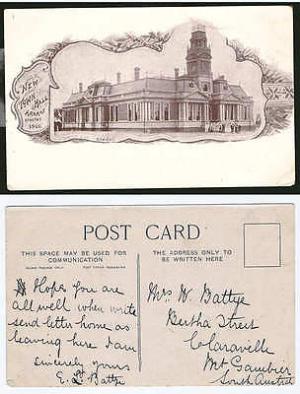 NEW
TOWN
HALL
ERECTED
POST CARD
THIS SPACE MAY BE USED FOR
COMMUNICATION
THE ADDRESS ONLY TO
BE WRITTEN HERE
Hope you are
all well when write
send letter home as
leaving here
Sincerely yours
E. Battye
Mrs W. Battye
Bertha Street
Colaraville
Mt Gambier
South Austral